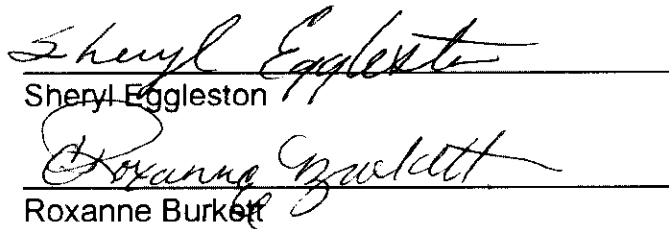 Sheryl Eggleston
Sheryl Eggleston
Roxanne Burkett
Roxanne Burkett